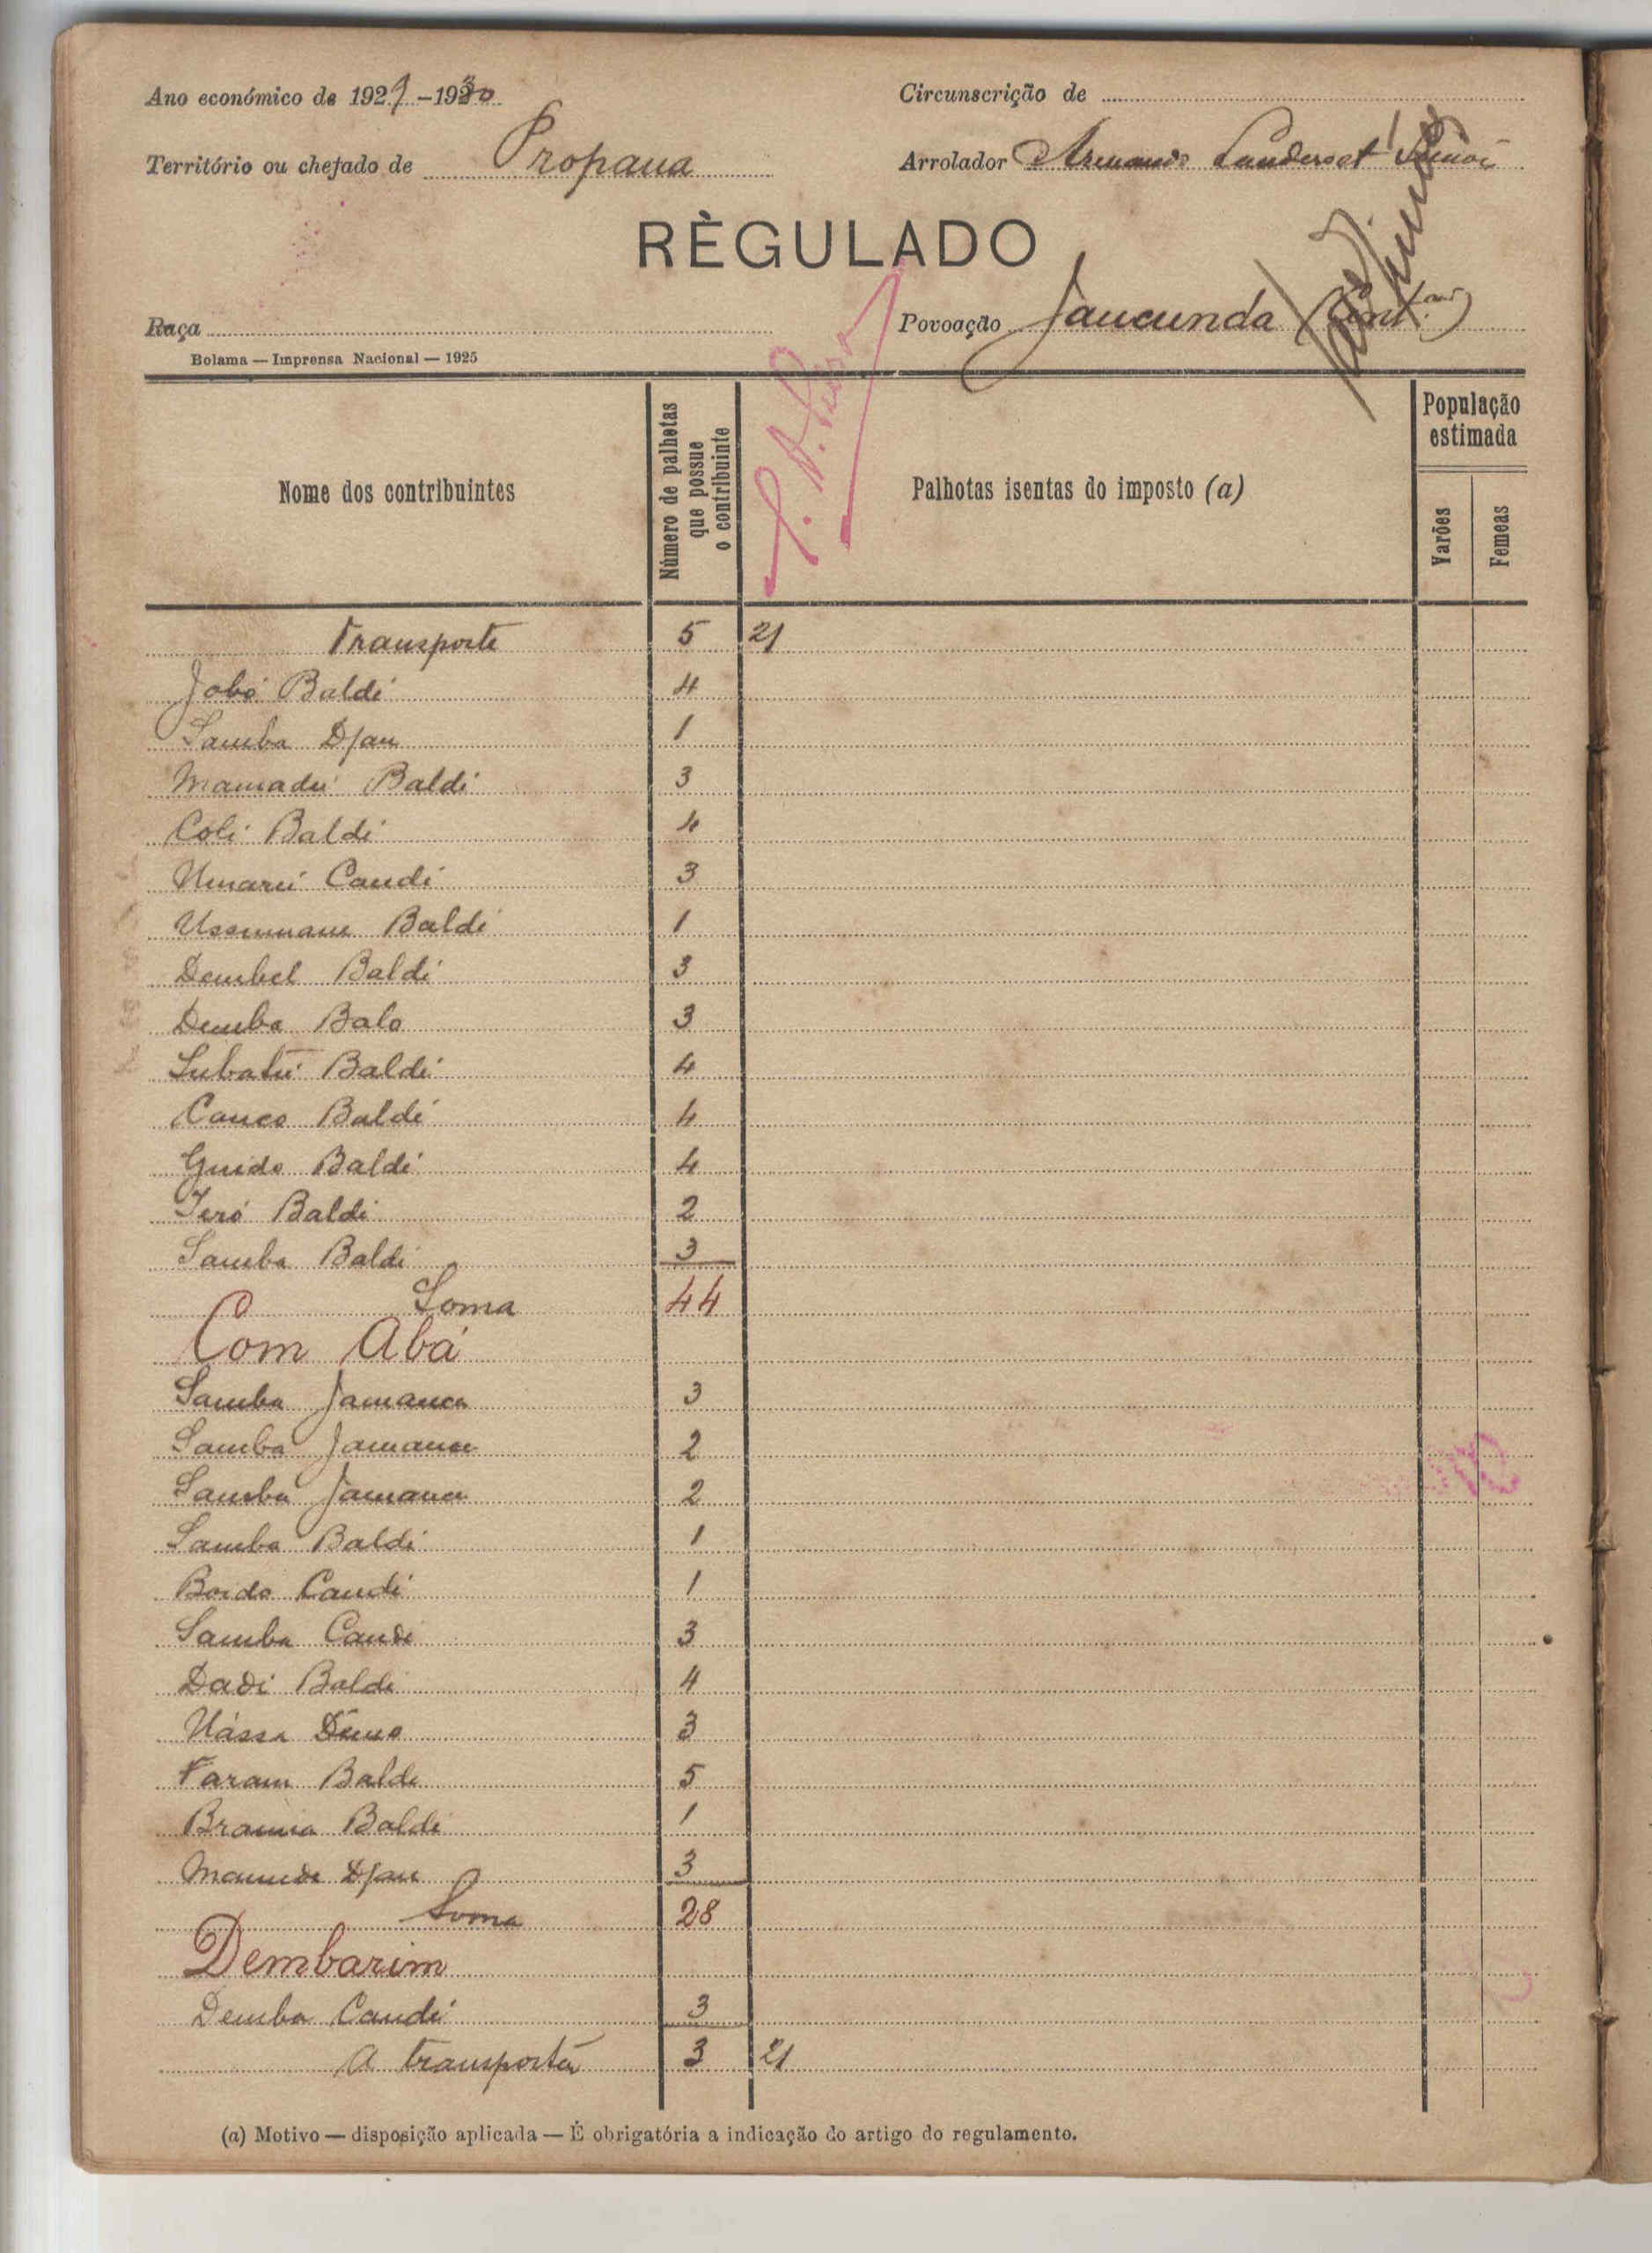 Ano económico de 1929-1930
Circunscrição de
Território ou chefado de Propana
Arrolador Armando Landerset Simões
RÈGULADO
Raça
Povoação Jaucunda (Cont.)
Bolama — Imprensa Nacional — 1925
Nome dos contribuintes
Número de palhotas que possue o contribuinte
Palhotas isentas do imposto (a)
População estimada
Varões
Femeas
Transporte 5 21
Jobó Baldé 4
Samba Djau 1
Mamadú Baldé 3
Coli Baldé 4
Umarú Candé 3
Ussumane Baldé 1
Dembel Baldé 3
Demba Balo 3
Subatú Baldé 4
Canco Baldé 4
Guido Baldé 4
Ieró Baldé 2
Samba Baldé 3
Soma 44
Com Abá
Samba Jamanca 3
Samba Jamanca 2
Samba Jamanca 2
Samba Baldé 1
Boido Candé 1
Samba Candé 3
Dadi Baldé 4
Uássa 3
Faram Balde 5
Braima Baldé 1
Mamudo Djau 3
Soma 28
Dembarim
Demba Candé 3
A transportar 3 21
(a) Motivo — disposição aplicada — É obrigatória a indicação do artigo do regulamento.